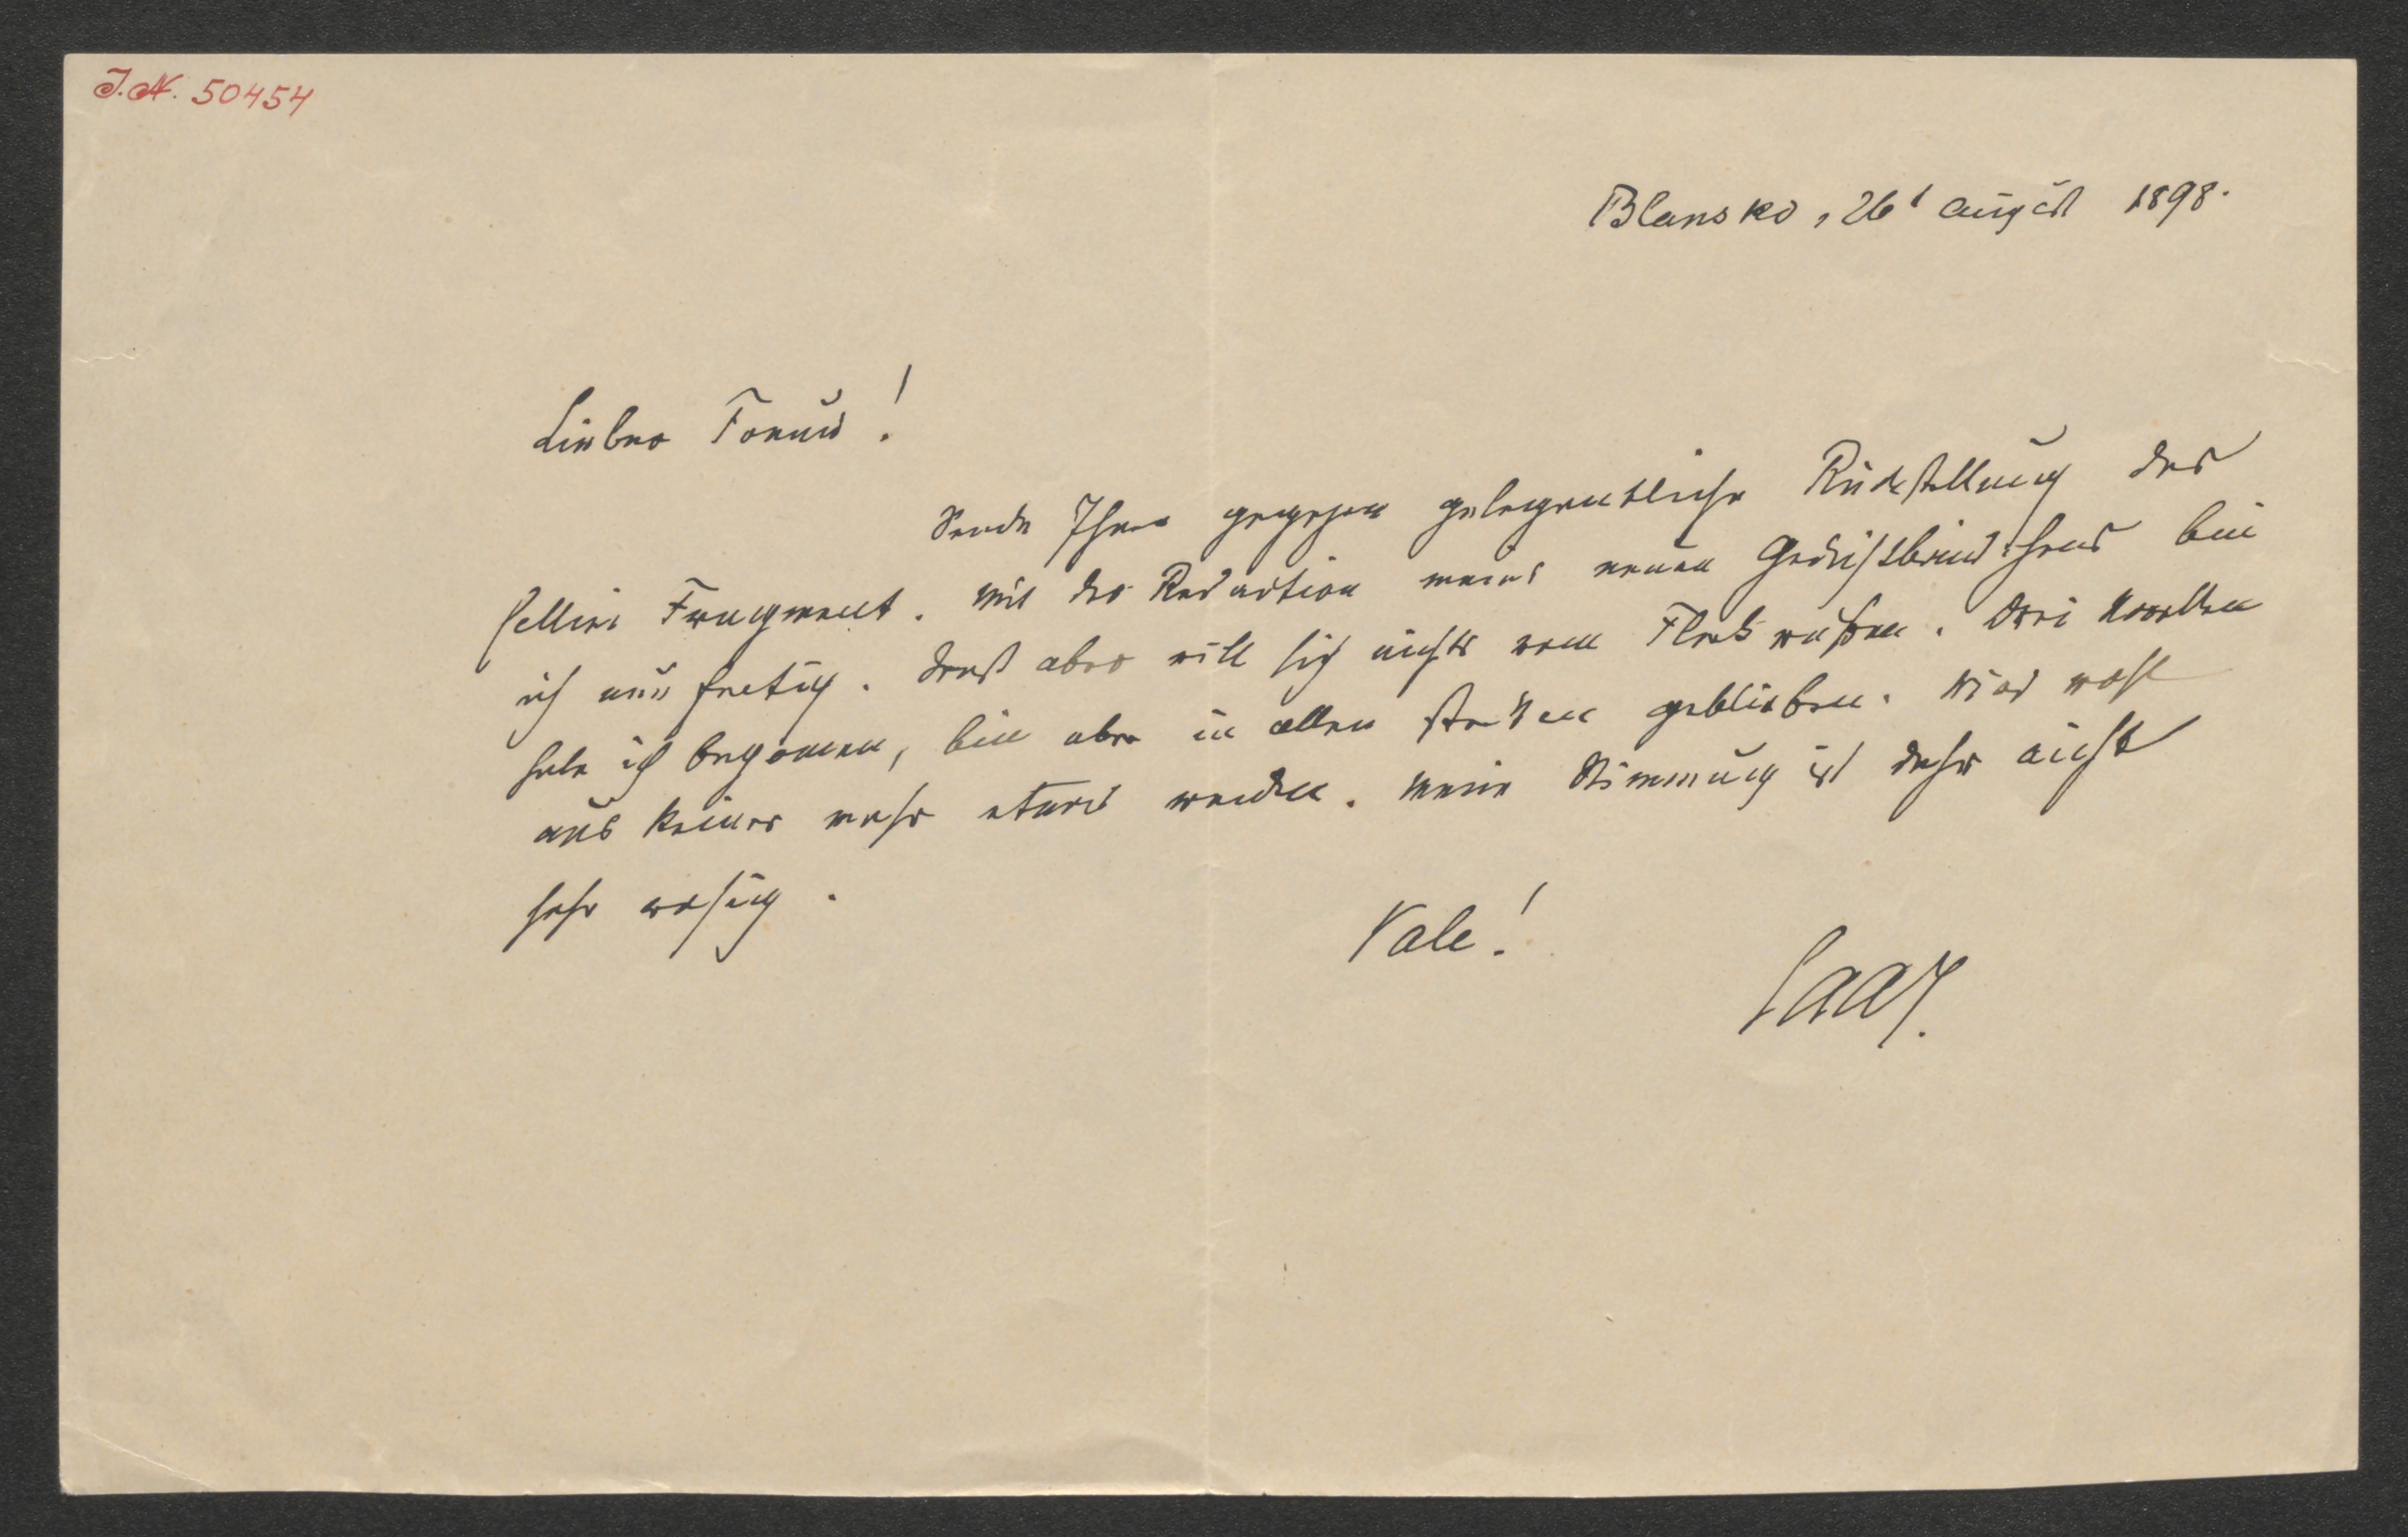 J.N. 50454
Blansko, 26t August 1898.
Lieber Freund!
Sende Ihnen gegen gelegentliche Rückstellung das
Fragment. Mit der Redaction meines neuen Gedichtbändchens bin
ich nun fertig. Sonst aber will sich nichts vom Fleck rühren. Drei Novellen
habe ich begonnen, bin aber in allen stecken geblieben. Wird wohl
aus keiner mehr etwas werden. Meine Stimmung ist daher nicht
sehr rosig.
Vale!
Saar.